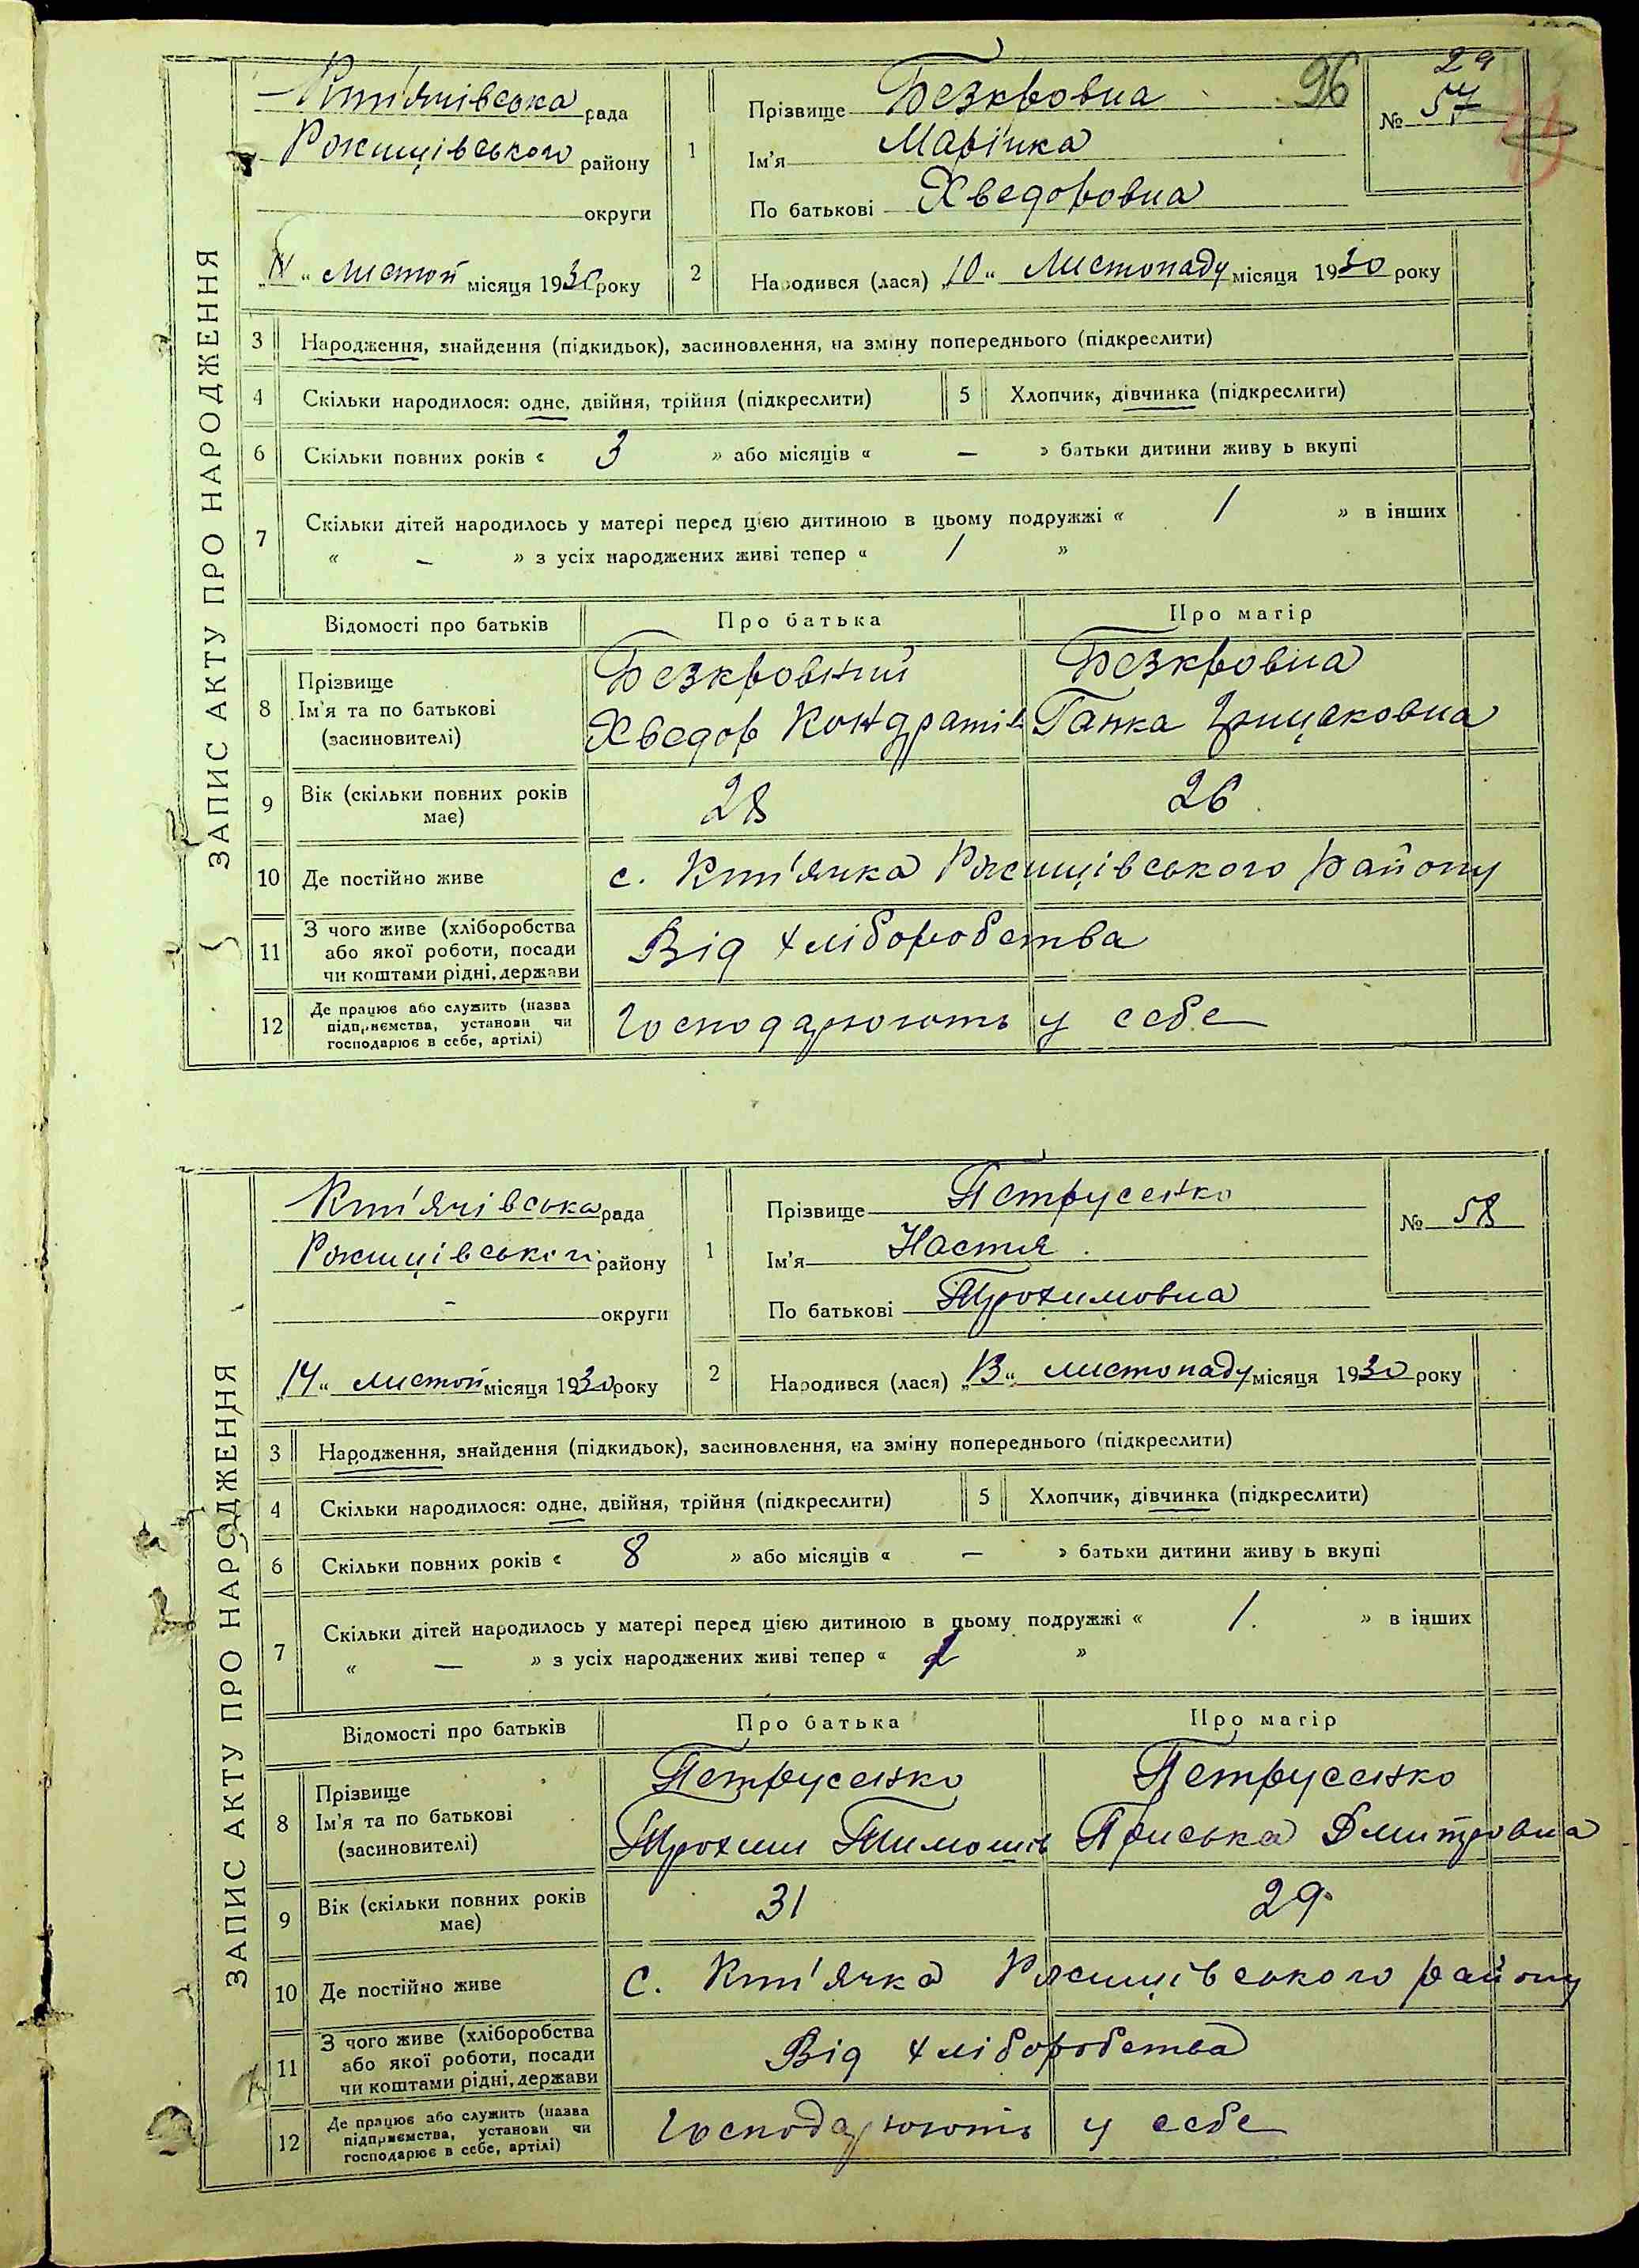 ЗАПИС АКТУ ПРО НАРОДЖЕННЯ
Кип'ячівська рада
Ржищівського району
округи
" листоп місяця 1930 року
96
29
№ 57
1
Прізвище Безкровна
Ім'я Марінка
По батькові Хведоровна
2
Народився (лася) „10“ Листопаду місяця 1930 року
3 Народження, знайдення (підкидьок), засиновлення, на зміну попереднього (підкреслити)
4 Скільки народилося: одне, двійня, трійня (підкреслити) 5 Хлопчик, дівчинка (підкреслити)
6 Скільки повних років « 3 » або місяців « — » батьки дитини живу ь вкупі
7 Скільки дітей народилось у матері перед цією дитиною в цьому подружжі « 1 » в інших
« — » з усіх народжених живі тепер « 1 »
Відомості про батьків Про батька Про матір
8 Прізвище Ім'я та по батькові (засиновителі)
Безкровний Безкровна
Хведор Кондратів Ганка Грицаковна
9 Вік (скільки повних років має) 28 26
10 Де постійно живе с. Кип'ячка Ржищівського району
11 З чого живе (хліборобства або якої роботи, посади чи коштами рідні, держави Від хліборобства
12 Де працює або служить (назва підприємства, установи чи господарює в себе, артілі) Господарюють у себе
ЗАПИС АКТУ ПРО НАРОДЖЕННЯ
Кип'ячівська рада
Ржищівського району
— округи
„14“ листоп місяця 1930 року
№ 58
1
Прізвище Петрусенко
Ім'я Настя
По батькові Трохимовна
2
Народився (лася) „13“ листопаду місяця 1930 року
3 Народження, знайдення (підкидьок), засиновлення, на зміну попереднього (підкреслити)
4 Скільки народилося: одне, двійня, трійня (підкреслити) 5 Хлопчик, дівчинка (підкреслити)
6 Скільки повних років « 8 » або місяців « — » батьки дитини живу ь вкупі
7 Скільки дітей народилось у матері перед цією дитиною в цьому подружжі « 1. » в інших
« — » з усіх народжених живі тепер « »
Відомості про батьків Про батька Про матір
8 Прізвище Ім'я та по батькові (засиновителі)
Петрусенко Петрусенко
Трохим Тимошів Приська Дмитровна
9 Вік (скільки повних років має) 31 29
10 Де постійно живе с. Кип'ячка Ржищівського району
11 З чого живе (хліборобства або якої роботи, посади чи коштами рідні, держави Від хліборобства
12 Де працює або служить (назва підприємства, установи чи господарює в себе, артілі) Господарюють у себе